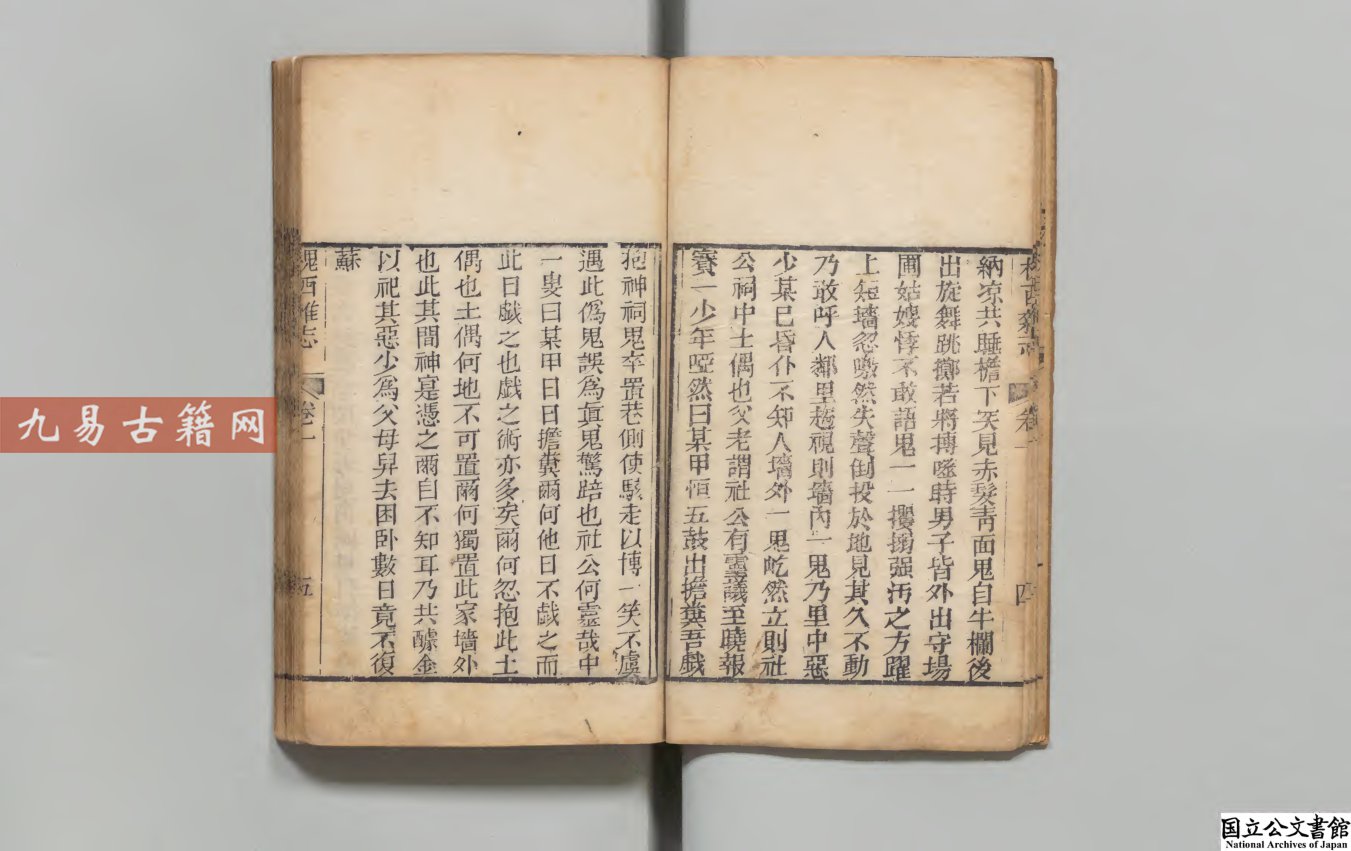 納凉共睡檐下突見赤髮青面鬼自牛欄後
出旋舞跳擲若將搏噬時男子皆外出守場
圃姑嫂悸不敢語鬼一一攫搦强汚之方躍
上短墻忽噭然失聲倒投於地見其久不動
乃敢呼人鄰里趨視則墻內一鬼乃里中惡
少某已昏仆不知人墻外一鬼屹然立則社
公祠中土偶也父老謂社公有靈議至曉報
賽一少年啞然曰某甲恒五鼓出擔糞吾戲
抱神祠鬼卒置巷側使駭走以博一笑不虞
遇此僞鬼誤爲眞鬼驚踣也社公何靈哉中
一叟曰某甲日日擔糞爾何他日不戲之而
此日戲之也戲之術亦多矣爾何忍抱此土
偶也土偶何地不可置爾何獨置此家墻外
也此其間神寔憑之爾自不知耳乃共醵金
以祀其惡少爲父母舁去困卧數日竟不復
蘇
槐西雜志
卷一
五
槐西雜志
卷一
四
九易古籍网
国立公文書館
National Archives of Japan